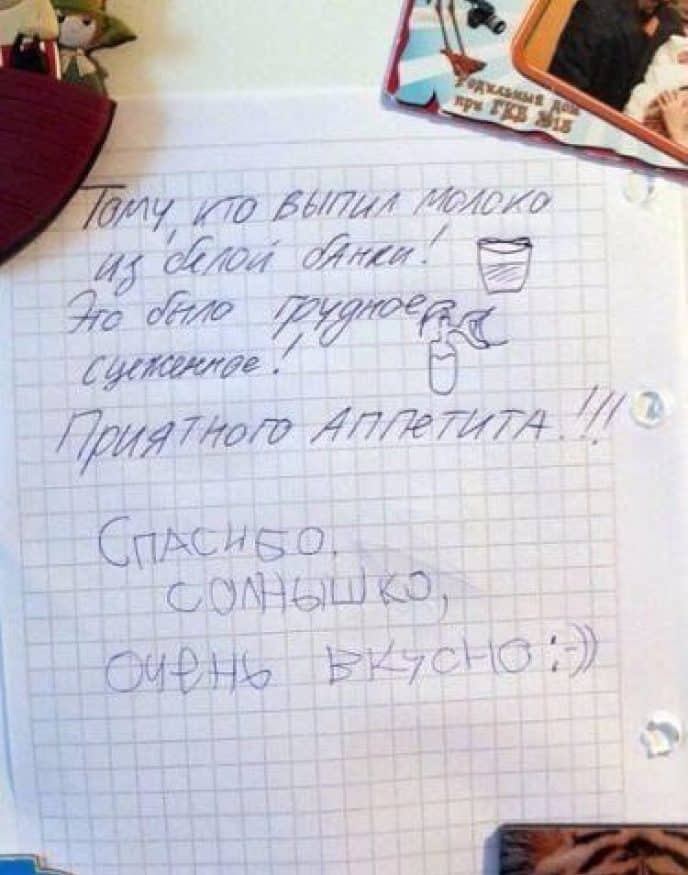 Родильный дом
при ГКБ №15
Тому, кто выпил молоко
из белой банки!
Это было грудное
сцеженное!
Приятного Аппетита!!!
Спасибо.
солнышко,
очень вкусно :-))